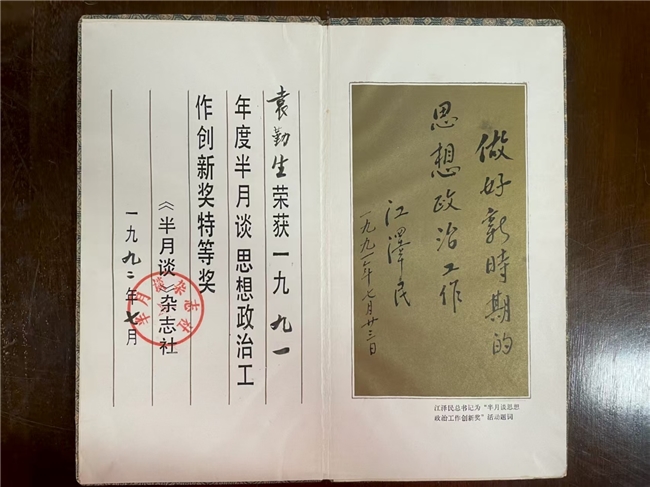 袁勤生荣获一九九一
年度半月谈思想政治工
作创新奖特等奖
《半月谈》杂志社
一九九二年七月
半月谈杂志社
做好新时期的
思想政治工作
江泽民
一九九一年七月廿三日
江泽民总书记为“半月谈思想
政治工作创新奖”活动题词